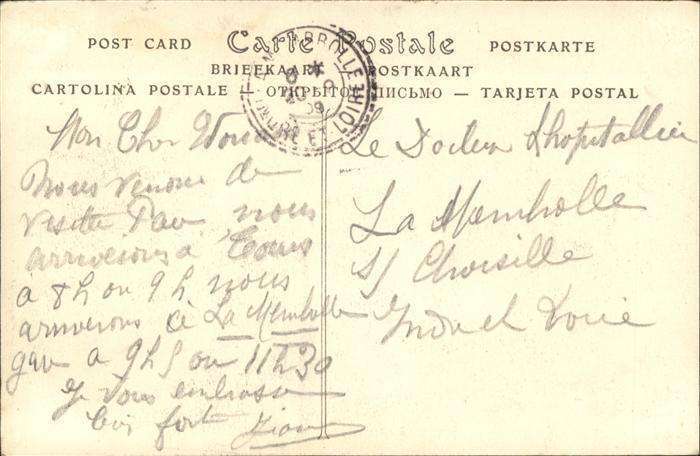 POST CARD Carte Postale POSTKARTE
BRIEFKAART POSTKAART
CARTOLINA POSTALE — ОТКРЫТОЕ ПИСЬМО — TARJETA POSTAL
LA MEMBROLLE
INDRE ET LOIRE
09
Mon Cher
Nous venons de
visiter Pau nous
arriverons à Tours
a 8h ou 9h nous
arriverons à La Membolle
gare a 9h5 ou 11h30
Je vous embrasse
bien fort
Le Docteur Lhopitallier
La Membrolle
S/ Choisille
Indre et Loire